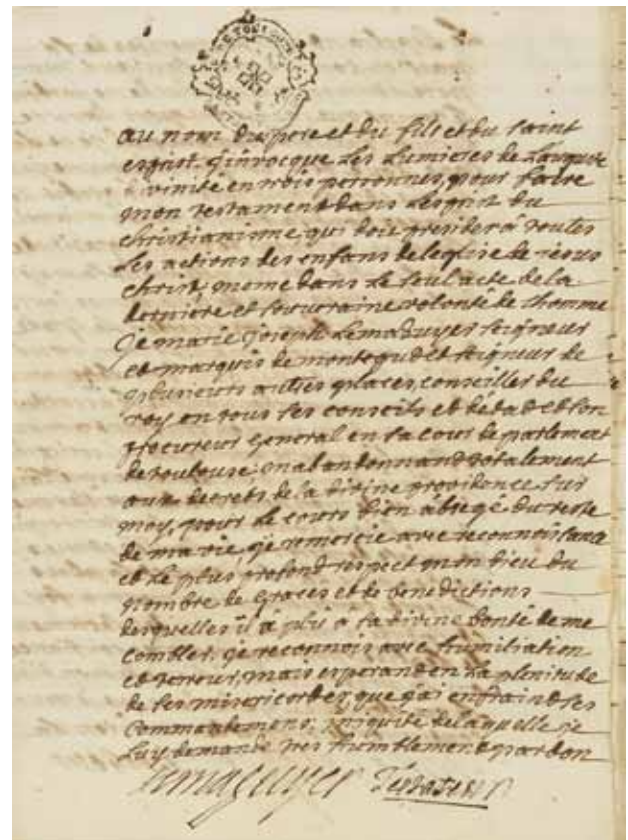 DE TOULOUSE
au nom du pere et du fils et du saint
esprit. j'invocque les lumieres de l'auguste
divinité en trois personnes, pour faire
mon testament dans l'esprit du
christianisme, qui doit presider à toutes
les actions des enfans de l'eglise de jesus
christ, meme dans le seul acte de la
derniere et souveraine volonté de l'homme
je marie joseph Lemazuyer seigneur
et marquis de montegud et seigneur de
plusieurs autres places, conseiller du
roy en tous ses conseils et détad et son
procureur general en sa cour de parlement
de toulouse. m'abandonnand totalement
aux decrets de la divine providence sur
moy, pour le cours bien abregé du reste
de ma vie. je remercie avec reconnoissance
et le plus profond respect mon dieu du
nombre de graces et de benedictions
desquelles il a plû à sa divine bonté de me
combler. je reconnois avec humiliation
et terreur, mais esperand en la plenitude
de ses misericordes, que j'ai enfraind ses
commandemens, iniquité de laquelle je
luy demande tres humblement pardon
Lemazuyer testateur